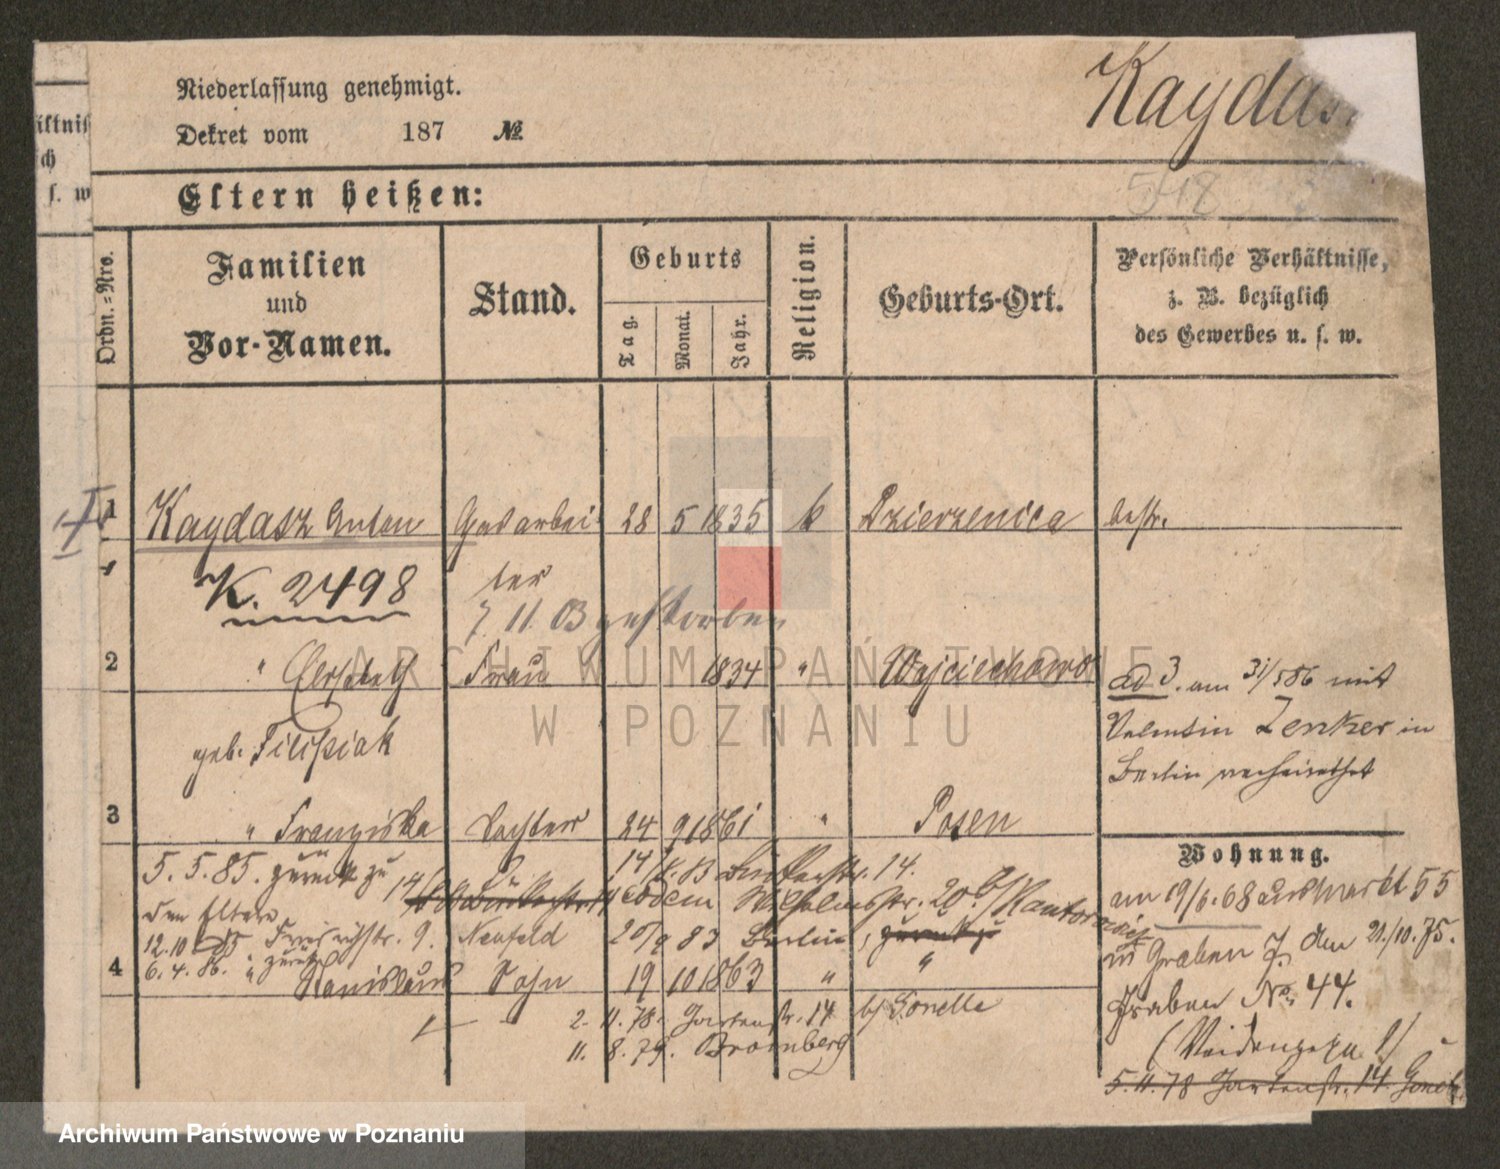 ältniß
ch
s. w
Niederlassung genehmigt.
Dekret vom 187 №
Kaydas
548
Eltern heißen:
Ordn.=Nro.
Familien
und
Vor-Namen.
Stand.
Geburts
Tag.
Monat.
Jahr.
Religion.
Geburts-Ort.
Persönliche Verhältnisse,
z. B. bezüglich
des Gewerbes u. s. w.
1 Kaydasz Anton Gasarbei- 28 5 1835 k Dzierzenica bestr.
ter
K. 2498
7. 11. 03 gestorben
2 " Elisabeth Frau 1834 " Wojciechowo
geb. Filipiak
ad 3. am 31/5 86 mit
Valentin Zenker in
Berlin verheirathet
3 " Franziska Tochter 24 9 1861 " Posen
5. 5. 85. zurück zu
den Eltern
12. 10 85 Friedrichstr. 9.
6. 4. 86. " zurück
14. eodem Wilhelmsstr. 20 b/ Kantorowicz
Neufeld 20/9 83 Berlin, zurück
4 Stanislaus Sohn 19 10 1863 " "
2. 11. 78. Gartenstr. 14 b/ Gonelle
11. 8. 79. Bromberg
Wohnung.
am 19/6. 68 Markt 55
Graben 7. den 21./10. 75.
Graben No. 44.
5. 11. 78 Gartenstr. 14.
ARCHIWUM PAŃSTWOWE
W POZNANIU
Archiwum Państwowe w Poznaniu